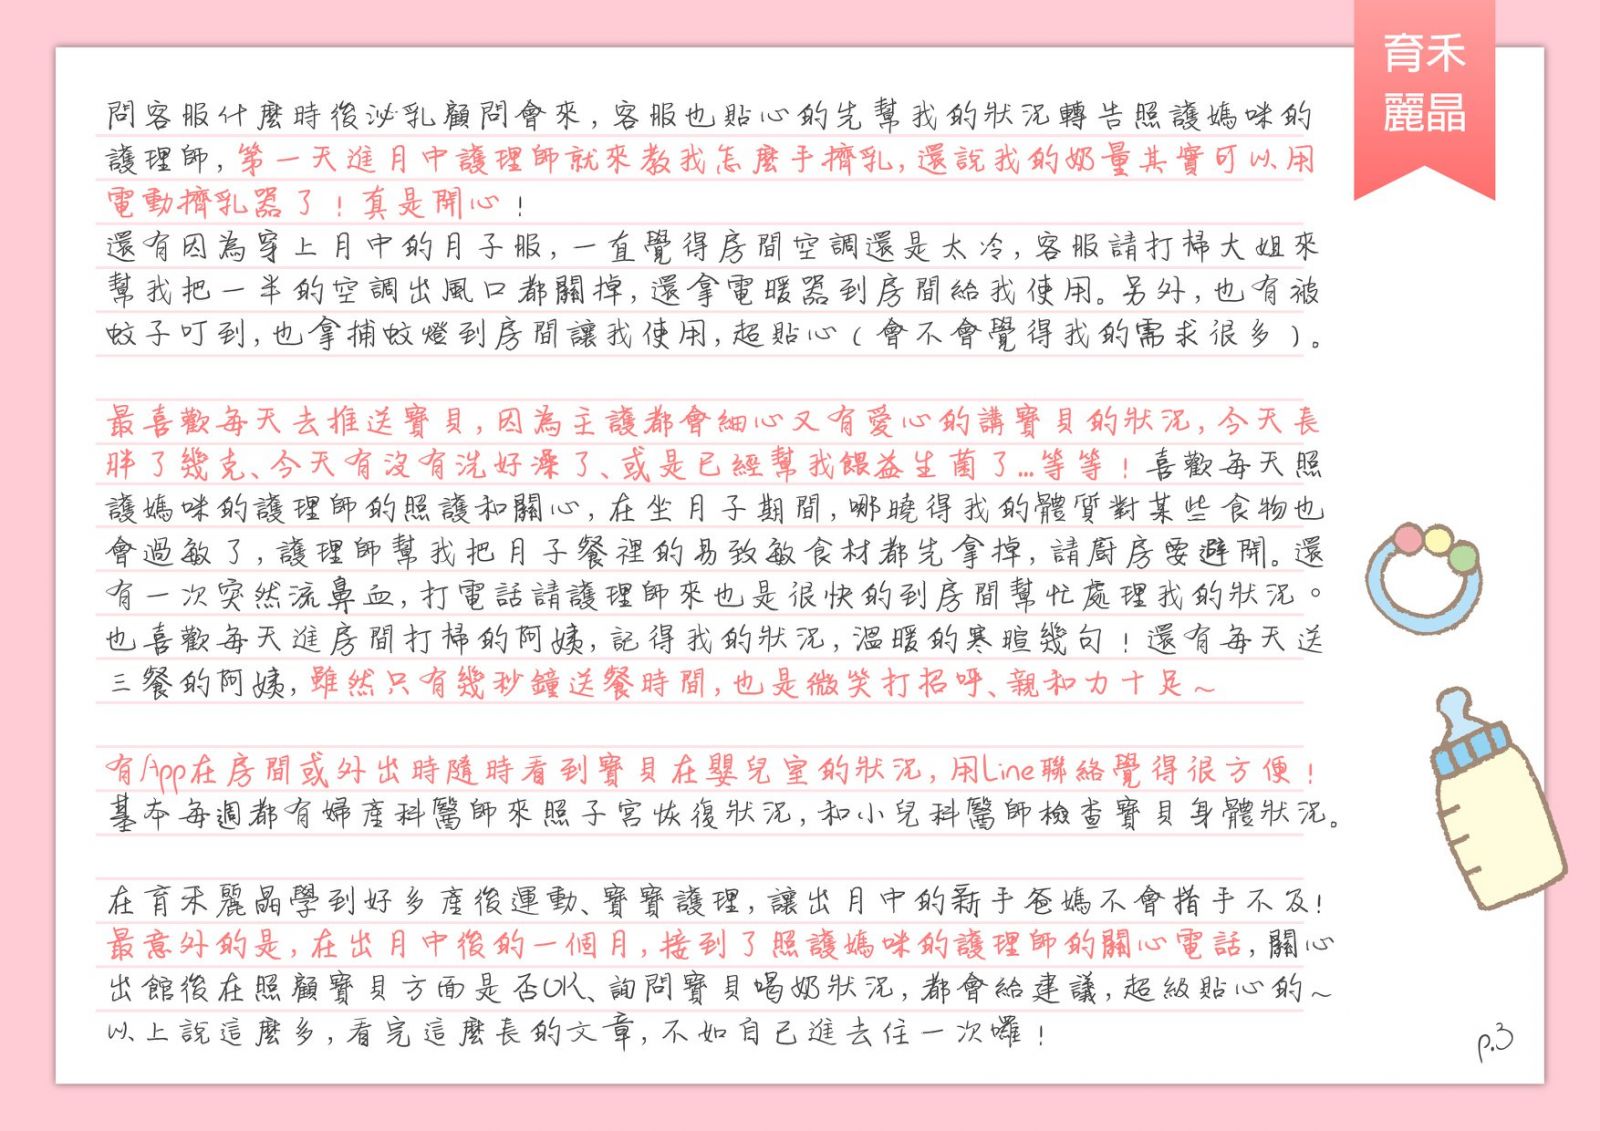 育禾
麗晶
問客服什麼時後泌乳顧問會來,客服也貼心的先幫我的狀況轉告照護媽咪的
護理師,第一天進月中護理師就來教我怎麼手擠乳,還說我的奶量其實可以用
電動擠乳器了!真是開心!
還有因為穿上月中的月子服,一直覺得房間空調還是太冷,客服請打掃大姐來
幫我把一半的空調出風口都關掉,還拿電暖器到房間給我使用。另外,也有被
蚊子叮到,也拿捕蚊燈到房間讓我使用,超貼心(會不會覺得我的需求很多)。
最喜歡每天去推送寶貝,因為主護都會細心又有愛心的講寶貝的狀況,今天長
胖了幾克、今天有沒有洗好澡了、或是已經幫我餵益生菌了...等等!喜歡每天照
護媽咪的護理師的照護和關心,在坐月子期間,哪曉得我的體質對某些食物也
會過敏了,護理師幫我把月子餐裡的易致敏食材都先拿掉,請廚房要避開。還
有一次突然流鼻血,打電話請護理師來也是很快的到房間幫忙處理我的狀況。
也喜歡每天進房間打掃的阿姨,記得我的狀況,溫暖的寒暄幾句!還有每天送
三餐的阿姨,雖然只有幾秒鐘送餐時間,也是微笑打招呼、親和力十足~
有App在房間或外出時隨時看到寶貝在嬰兒室的狀況,用Line聯絡覺得很方便!
基本每週都有婦產科醫師來照子宮恢復狀況,和小兒科醫師檢查寶貝身體狀況。
在育禾麗晶學到好多產後運動、寶寶護理,讓出月中的新手爸媽不會措手不及!
最意外的是,在出月中後的一個月,接到了照護媽咪的護理師的關心電話,關心
出館後在照顧寶貝方面是否OK、詢問寶貝喝奶狀況,都會給建議,超級貼心的~
以上說這麼多,看完這麼長的文章,不如自己進去住一次囉!
p.3